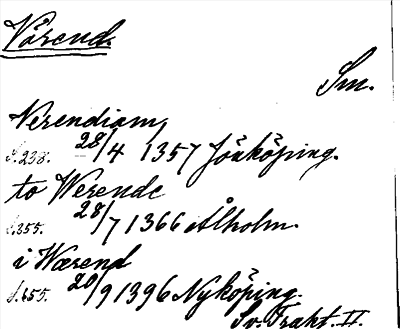 Värend.
Sm.
Verendiam,
S.238. 28/4 1357 Jönköping.
to Werende
S.355. 28/7 1366 Alholm.
i Wærend
S.655. 20/9 1396 Nyköping.
Sv. Trakt. II.